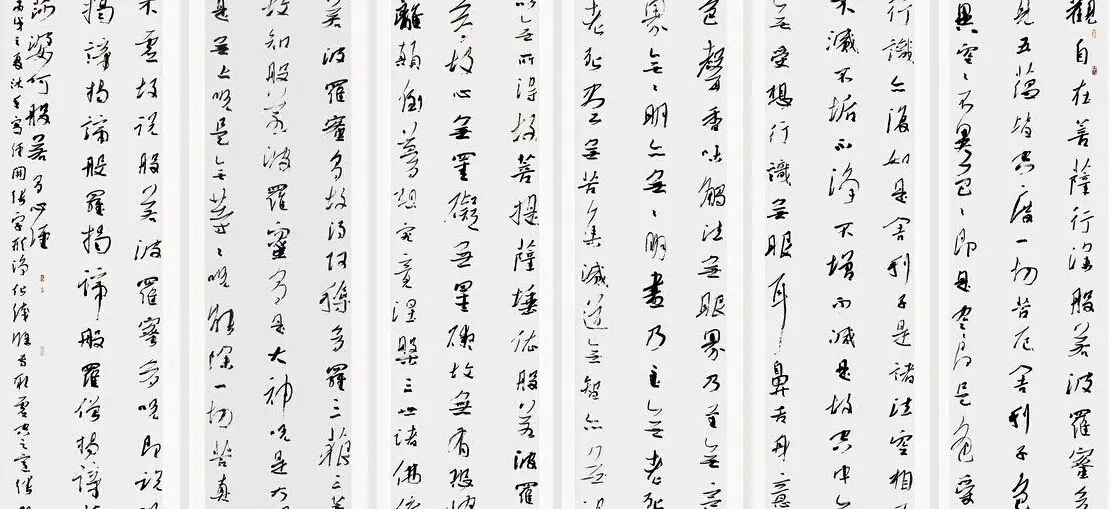 觀自在菩薩行深般若波羅蜜多
見五蘊皆空度一切苦厄舍利子色
異空〻不異色〻即是空〻即是色受
行識亦復如是舍利子是諸法空相
不滅不垢不淨不增不減是故空中
無受想行識無眼耳鼻舌身意
色聲香味觸法無眼界乃至無意
界無〻明亦無〻明盡乃至無老死
老死盡無苦集滅道無智亦無
以無所得故菩提薩埵依般若波羅
多故心無罣礙無罣礙故無有恐怖
離顛倒夢想究竟涅槃三世諸佛依
若波羅蜜多故得阿耨多羅三藐三菩
故知般若波羅蜜多是大神咒是大
是無上咒是無等〻咒能除一切苦真
不虛故說般若波羅蜜多咒即說
揭諦揭諦般羅揭諦般羅僧揭諦
婆訶般若多心經